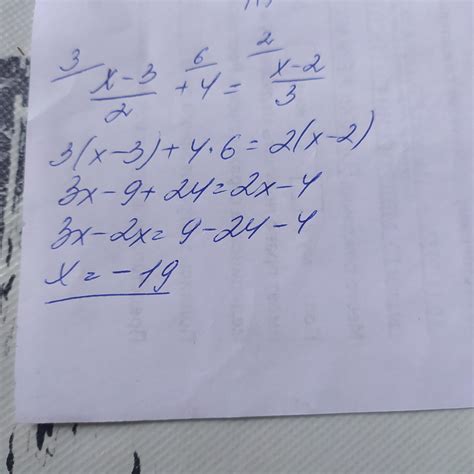 3 6 2
x-3/2 + 4 = x-2/3
3(x-3)+4·6=2(x-2)
3x-9+24=2x-4
3x-2x=9-24-4
x=-19